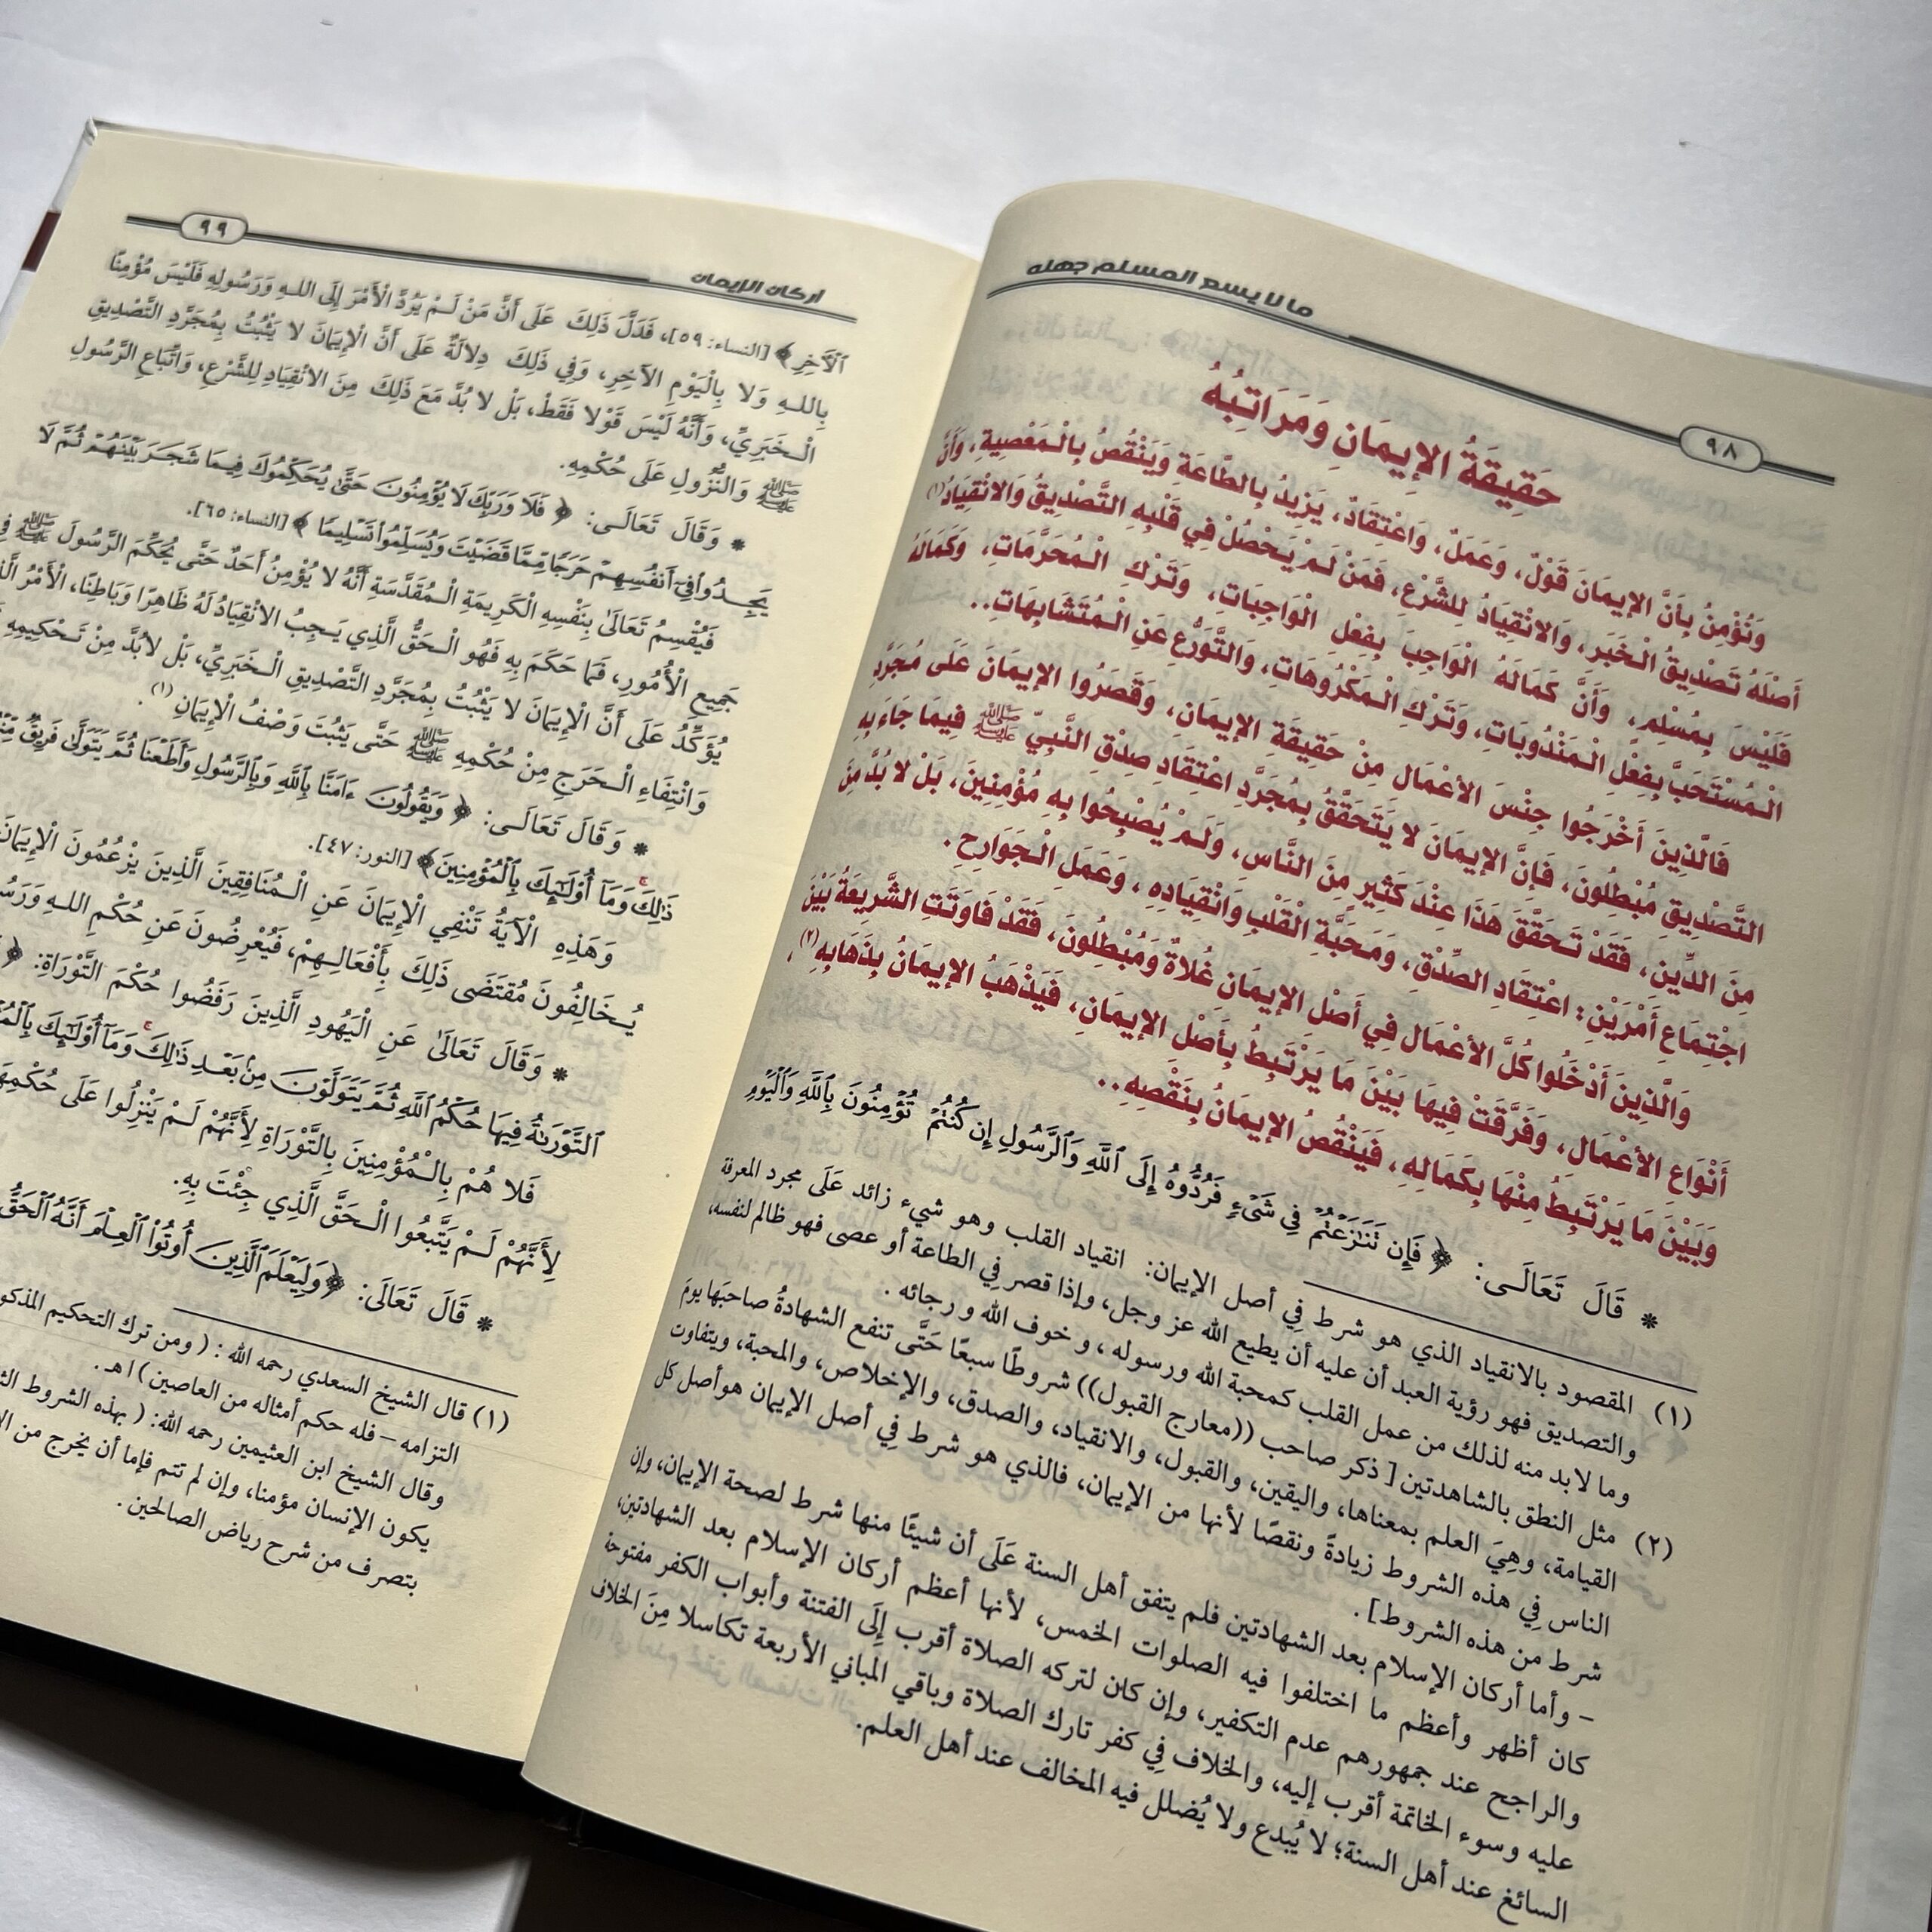 ما لا يسع المسلم جهله
٩٨
حَقِيقَةُ الإِيمَانِ وَمَرَاتِبُهُ
وَنُؤْمِنُ بِأَنَّ الإِيمَانَ قَوْلٌ، وَعَمَلٌ، وَاعْتِقَادٌ، يَزِيدُ بِالطَّاعَةِ وَيَنْقُصُ بِالْمَعْصِيةِ، وَأَنَّ
أَصْلَهُ تَصْدِيقُ الْخَبَرِ، وَالانْقِيَادُ لِلشَّرْعِ، فَمَنْ لَمْ يَحْصُلْ فِي قَلْبِهِ التَّصْدِيقُ وَالانْقِيَادُ(١)
فَلَيْسَ بِمُسْلِمٍ، وَأَنَّ كَمَالَهُ الْوَاجِبَ بِفِعْلِ الْوَاجِبَاتِ، وَتَرْكِ الْمُحَرَّمَاتِ، وَكَمَالَهُ
الْمُسْتَحَبَّ بِفِعْلِ الْمَنْدُوبَاتِ، وَتَرْكِ الْمَكْرُوهَاتِ، وَالتَّوَرُّعِ عَنِ الْمُتَشَابِهَاتِ..
فَالَّذِينَ أَخْرَجُوا جِنْسَ الأَعْمَالِ مِنْ حَقِيقَةِ الإِيمَانِ، وَقَصَرُوا الإِيمَانَ عَلَى مُجَرَّدِ
التَّصْدِيقِ مُبْطِلُونَ، فَإِنَّ الإِيمَانَ لا يَتَحَقَّقُ بِمُجَرَّدِ اعْتِقَادِ صِدْقِ النَّبِيِّ ﷺ فِيمَا جَاءَ بِهِ
مِنَ الدِّينِ، فَقَدْ تَحَقَّقَ هَذَا عِنْدَ كَثِيرٍ مِنَ النَّاسِ، وَلَمْ يُصْبِحُوا بِهِ مُؤْمِنِينَ، بَلْ لا بُدَّ مِنَ
اجْتِمَاعِ أَمْرَيْنِ: اعْتِقَادِ الصِّدْقِ، وَمَحَبَّةِ الْقَلْبِ وَانْقِيَادِهِ، وَعَمَلِ الْجَوَارِحِ.
وَالَّذِينَ أَدْخَلُوا كُلَّ الأَعْمَالِ فِي أَصْلِ الإِيمَانِ غُلاةٌ وَمُبْطِلُونَ، فَقَدْ فَاوَتَتِ الشَّرِيعَةُ بَيْنَ
أَنْوَاعِ الأَعْمَالِ، وَفَرَّقَتْ فِيهَا بَيْنَ مَا يَرْتَبِطُ بِأَصْلِ الإِيمَانِ، فَيَذْهَبُ الإِيمَانُ بِذَهَابِهِ(٢)،
وَبَيْنَ مَا يَرْتَبِطُ مِنْهَا بِكَمَالِهِ، فَيَنْقُصُ الإِيمَانُ بِنَقْصِهِ..
* قَالَ تَعَالَى: ﴿ فَإِن تَنَٰزَعۡتُمۡ فِي شَيۡءٖ فَرُدُّوهُ إِلَى ٱللَّهِ وَٱلرَّسُولِ إِن كُنتُمۡ تُؤۡمِنُونَ بِٱللَّهِ وَٱلۡيَوۡمِ
(١) المقصود بالانقياد الذي هو شرط فِي أصل الإيمان: انقياد القلب وهو شيء زائد عَلَى مجرد المعرفة
والتصديق فهو رؤية العبد أن عليه أن يطيع الله عز وجل، وإذا قصر فِي الطاعة أو عصى فهو ظالم لنفسه،
وما لابد منه لذلك من عمل القلب كمحبة الله ورسوله، وخوف الله ورجائه.
(٢) مثل النطق بالشاهدتين [ذكر صاحب ((معارج القبول)) شروطًا سبعًا حَتَّى تنفع الشهادةُ صاحبَها يومَ
القيامة، وهِيَ العلم بمعناها، واليقين، والقبول، والانقياد، والصدق، والإخلاص، والمحبة، ويتفاوت
الناس فِي هذه الشروط زيادةً ونقصًا لأنها من الإيمان، فالذي هو شرط فِي أصل الإيمان هو أصل كل
شرط من هذه الشروط].
– وأما أركان الإسلام بعد الشهادتين فلم يتفق أهل السنة عَلَى أن شيئًا منها شرط لصحة الإيمان، وإن
كان أظهر وأعظم ما اختلفوا فيه الصلوات الخمس، لأنها أعظم أركان الإسلام بعد الشهادتين،
والراجح عند جمهورهم عدم التكفير، وإن كان لتركه الصلاة أقرب إِلَى الفتنة وأبواب الكفر مفتوحة
عليه وسوء الخاتمة أقرب إليه، والخلاف فِي كفر تارك الصلاة وباقي المباني الأربعة تكاسلا مِنَ الخلاف
السائغ عند أهل السنة؛ لا يُبدع ولا يُضلل فيه المخالف عند أهل العلم.
أركان الإيمان
٩٩
ٱلۡأٓخِرِ﴾ [النساء: ٥٩]، فَدَلَّ ذَلِكَ عَلَى أَنَّ مَنْ لَمْ يَرُدَّ الْأَمْرَ إِلَى اللهِ وَرَسُولِهِ فَلَيْسَ مُؤْمِنًا
بِاللهِ وَلا بِالْيَوْمِ الآخِرِ، وَفِي ذَلِكَ دِلالَةٌ عَلَى أَنَّ الْإِيمَانَ لا يَثْبُتُ بِمُجَرَّدِ التَّصْدِيقِ
الْخَبَرِيِّ، وَأَنَّهُ لَيْسَ قَوْلا فَقَطْ، بَلْ لا بُدَّ مَعَ ذَلِكَ مِنَ الانْقِيَادِ لِلشَّرْعِ، وَاتِّبَاعِ الرَّسُولِ
ﷺ وَالنُّزُولِ عَلَى حُكْمِهِ.
* وَقَالَ تَعَالَى: ﴿ فَلَا وَرَبِّكَ لَا يُؤۡمِنُونَ حَتَّىٰ يُحَكِّمُوكَ فِيمَا شَجَرَ بَيۡنَهُمۡ ثُمَّ لَا
يَجِدُواْ فِيٓ أَنفُسِهِمۡ حَرَجٗا مِّمَّا قَضَيۡتَ وَيُسَلِّمُواْ تَسۡلِيمٗا ﴾ [النساء: ٦٥].
فَيُقْسِمُ تَعَالَى بِنَفْسِهِ الْكَرِيمَةِ الْمُقَدَّسَةِ أَنَّهُ لا يُؤْمِنُ أَحَدٌ حَتَّى يُحَكِّمَ الرَّسُولَ ﷺ فِي
جَمِيعِ الْأُمُورِ، فَمَا حَكَمَ بِهِ فَهُوَ الْحَقُّ الَّذِي يَجِبُ الانْقِيَادُ لَهُ ظَاهِرًا وَبَاطِنًا، الْأَمْرُ
يُؤَكِّدُ عَلَى أَنَّ الْإِيمَانَ لا يَثْبُتُ بِمُجَرَّدِ التَّصْدِيقِ الْخَبَرِيِّ، بَلْ لابُدَّ مِنْ تَحْكِيمِهِ
وَانْتِفَاءِ الْحَرَجِ مِنْ حُكْمِهِ ﷺ حَتَّى يَثْبُتَ وَصْفُ الْإِيمَانِ(١).
* وَقَالَ تَعَالَى: ﴿ وَيَقُولُونَ ءَامَنَّا بِٱللَّهِ وَبِٱلرَّسُولِ وَأَطَعۡنَا ثُمَّ يَتَوَلَّىٰ فَرِيقٞ
ذَٰلِكَۚ وَمَآ أُوْلَٰٓئِكَ بِٱلۡمُؤۡمِنِينَ﴾ [النور: ٤٧].
وَهَذِهِ الْآيَةُ تَنْفِي الْإِيمَانَ عَنِ الْمُنَافِقِينَ الَّذِينَ يَزْعُمُونَ الْإِيمَانَ
يُخَالِفُونَ مُقْتَضَى ذَلِكَ بِأَفْعَالِهِمْ، فَيُعْرِضُونَ عَنِ حُكْمِ اللهِ
* وَقَالَ تَعَالَى عَنِ الْيَهُودِ الَّذِينَ رَفَضُوا حُكْمَ التَّوْرَاةِ: ﴿
ٱلتَّوۡرَىٰةُ فِيهَا حُكۡمُ ٱللَّهِ ثُمَّ يَتَوَلَّوۡنَ مِنۢ بَعۡدِ ذَٰلِكَۚ وَمَآ أُوْلَٰٓئِكَ
فَلا هُمْ بِالْمُؤْمِنِينَ بِالتَّوْرَاةِ لِأَنَّهُمْ لَمْ يَنْزِلُوا عَلَى
لِأَنَّهُمْ لَمْ يَتَّبِعُوا الْحَقَّ الَّذِي جِئْتَ بِهِ.
* قَالَ تَعَالَى: ﴿وَلِيَعۡلَمَ ٱلَّذِينَ أُوتُواْ ٱلۡعِلۡمَ أَنَّهُ ٱلۡحَقُّ
(١) قال الشيخ السعدي رحمه الله: (ومن ترك التحكيم
التزامه – فله حكم أمثاله من العاصين) ا هـ.
وقال الشيخ ابن العثيمين رحمه الله: (بهذه الشروط
يكون الإنسان مؤمنا، وإن لم تتم فإما أن يخرج من
بتصرف من شرح رياض الصالحين.